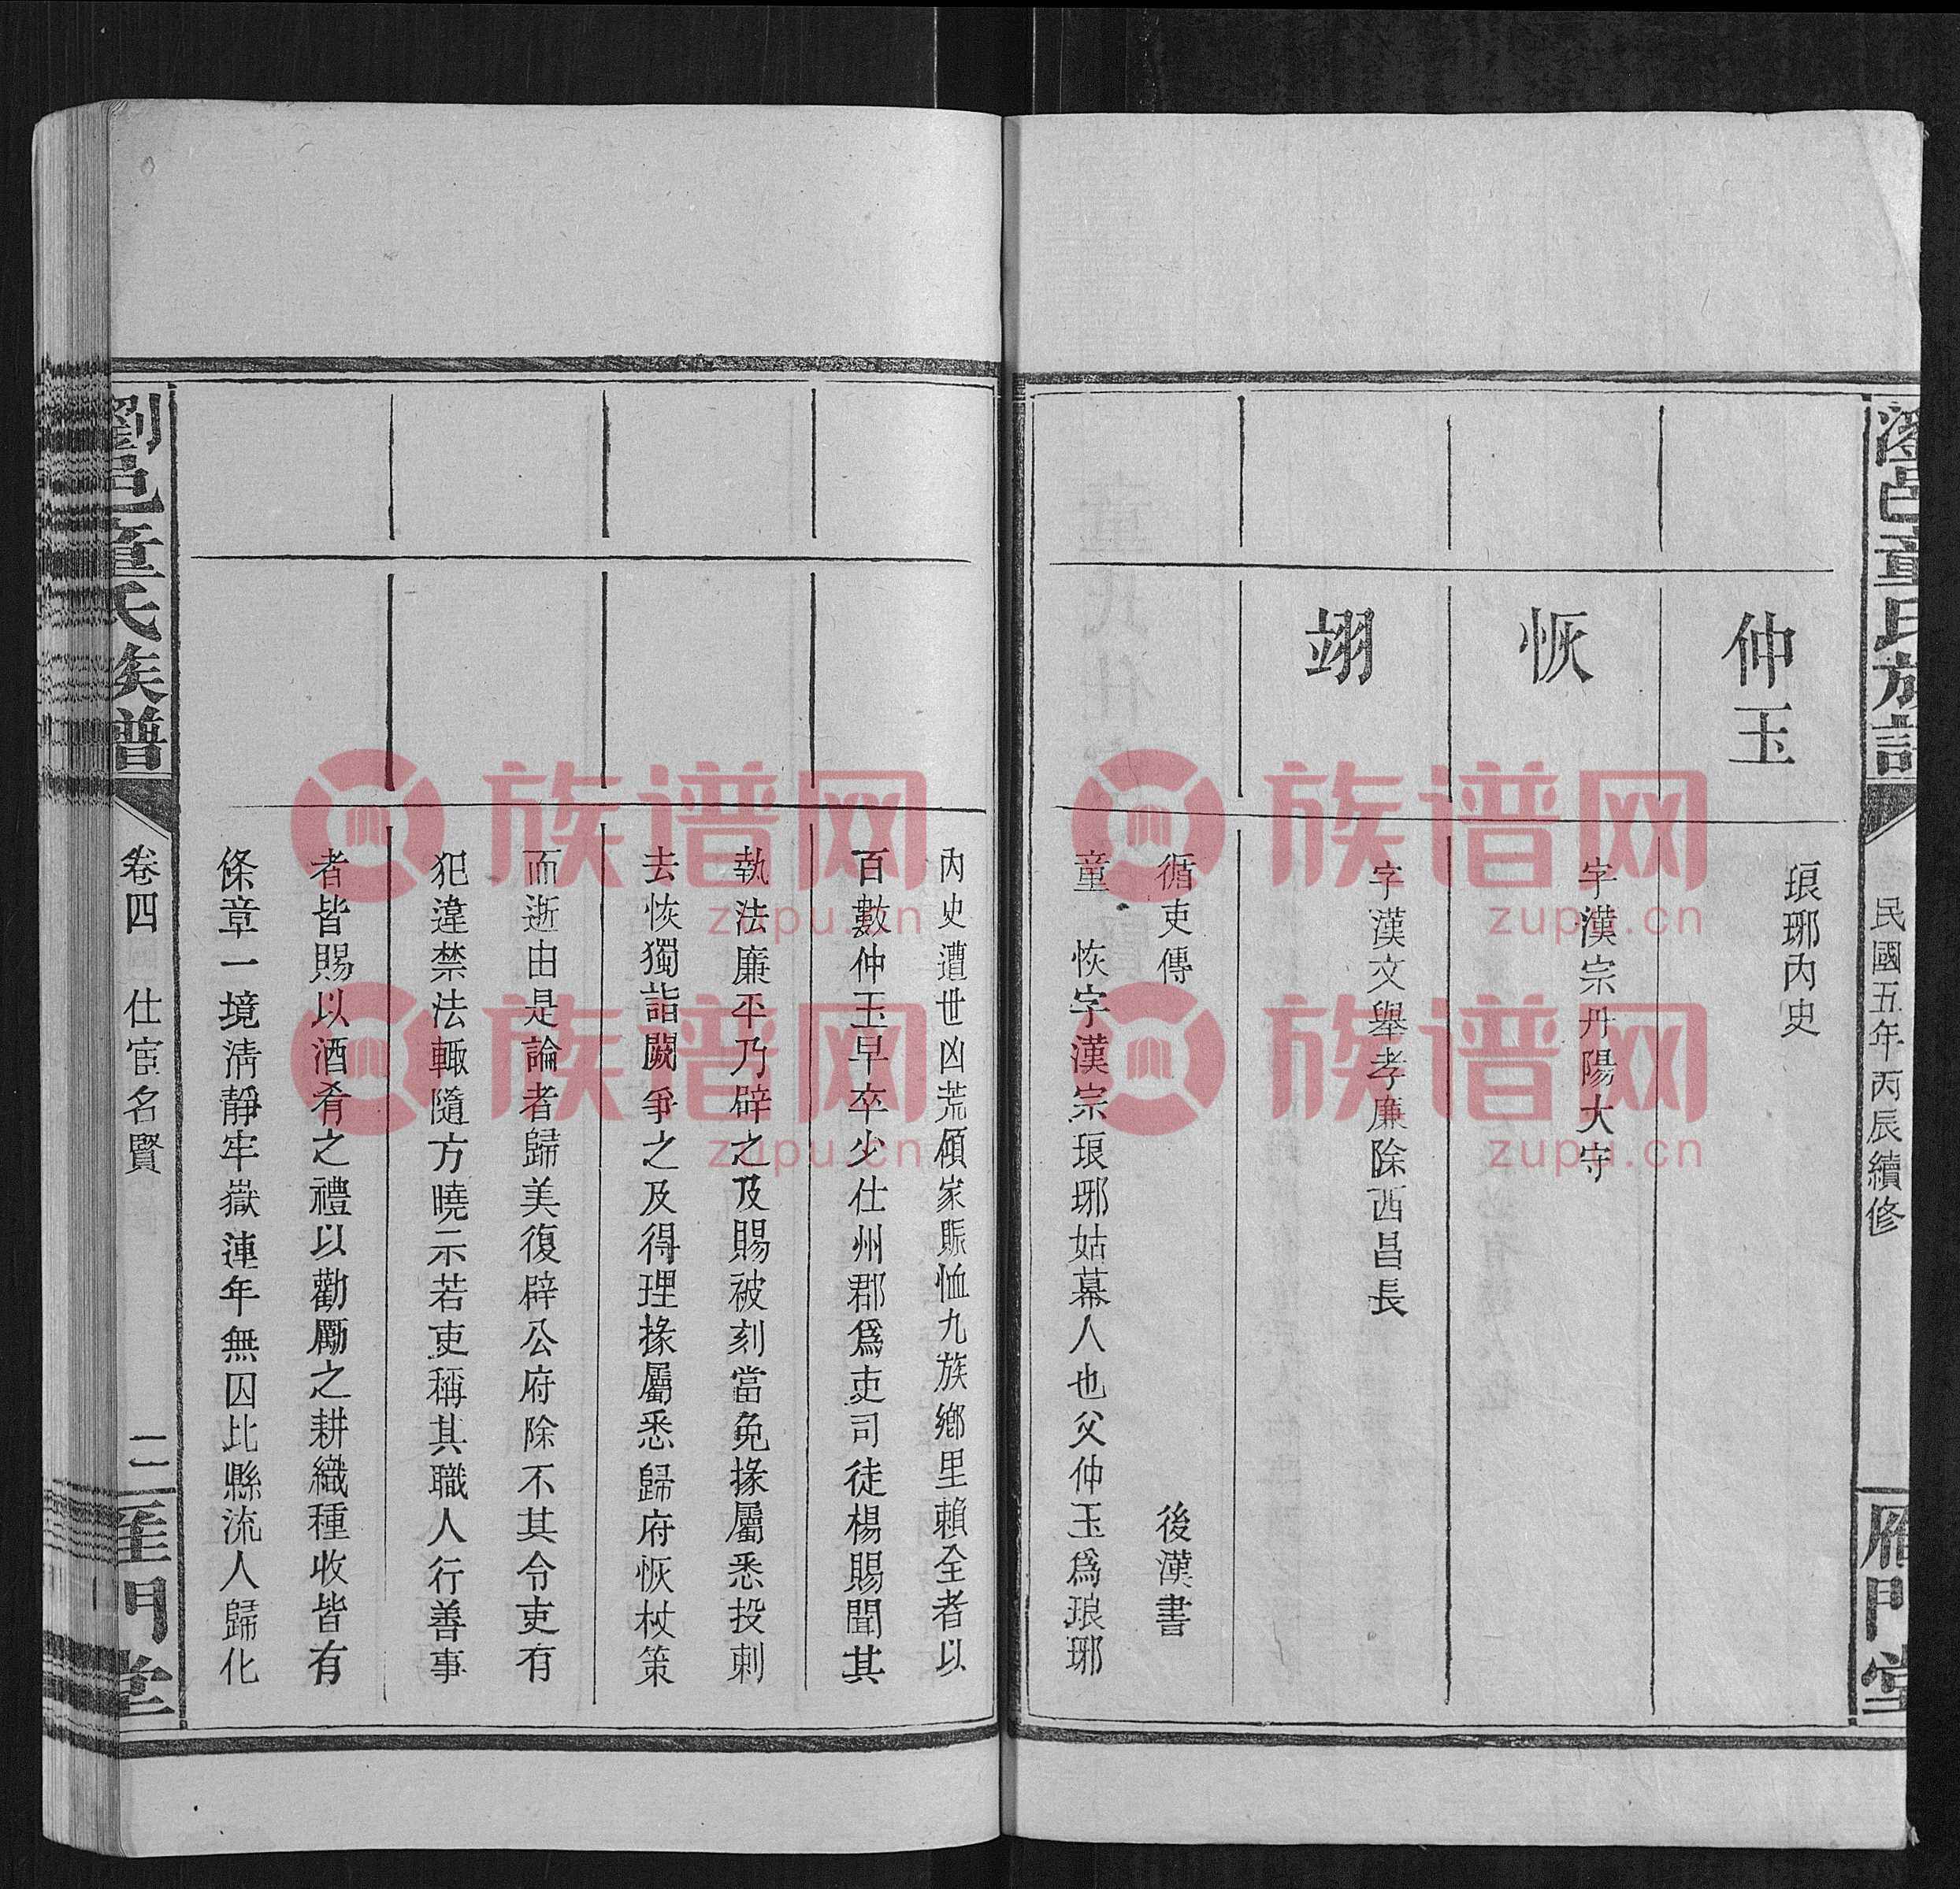 瀏邑童氏族譜
民國五年丙辰續修
雁門堂
仲玉
琅琊內史
恢
字漢宗丹陽大守
翊
字漢文舉孝廉除西昌長
循吏傳 後漢書
童 恢字漢宗琅琊姑幕人也父仲玉爲琅琊
內史遭世凶荒傾家賑恤九族鄉里賴全者以
百數仲玉早卒少仕州郡爲吏司徒楊賜聞其
執法廉平乃辟之及賜被刻當免掾屬悉投刺
去恢獨詣闕爭之及得理掾屬悉歸府恢杖策
而逝由是論者歸美復辟公府除不其令吏有
犯違禁法輒隨方曉示若吏稱其職人行善事
者皆賜以酒肴之禮以勸勵之耕織種收皆有
條章一境清靜牢嶽連年無囚比縣流人歸化
劉邑童氏族譜
卷四 仕宦名賢
二
雁門堂
族谱网
zupu.cn
族谱网
zupu.cn
族谱网
zupu.cn
族谱网
zupu.cn